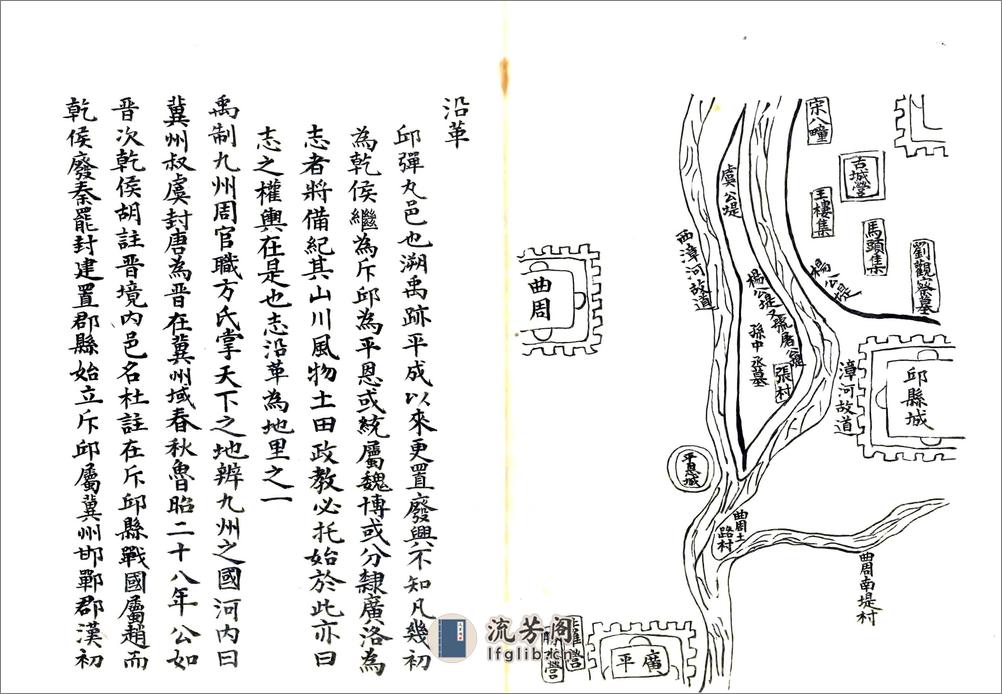 宋八疃
古城營
王樓集
馬頭集
劉觀察墓
楊公堤
虞公堤
西漳河故道
楊公堤又號唐公堤
孫中丞墓
張村
漳河故道
邱縣城
曲周
平恩城
曲周土路村
曲周南堤村
廣平
沿革
邱彈丸邑也溯禹跡平成以來更置廢興不知凡幾初
為乾侯繼為斥邱為平恩或統屬魏博或分隸廣洛為
志者將備紀其山川風物土田政教必托始於此亦曰
志之權輿在是也志沿革為地里之一
禹制九州周官職方氏掌天下之地辨九州之國河內曰
冀州叔虞封唐為晉在冀州域春秋魯昭二十八年公如
晉次乾侯胡註晉境內邑名杜註在斥邱縣戰國屬趙而
乾侯廢秦罷封建置郡縣始立斥邱屬冀州邯鄲郡漢初
流芳阁
lfglib.cn